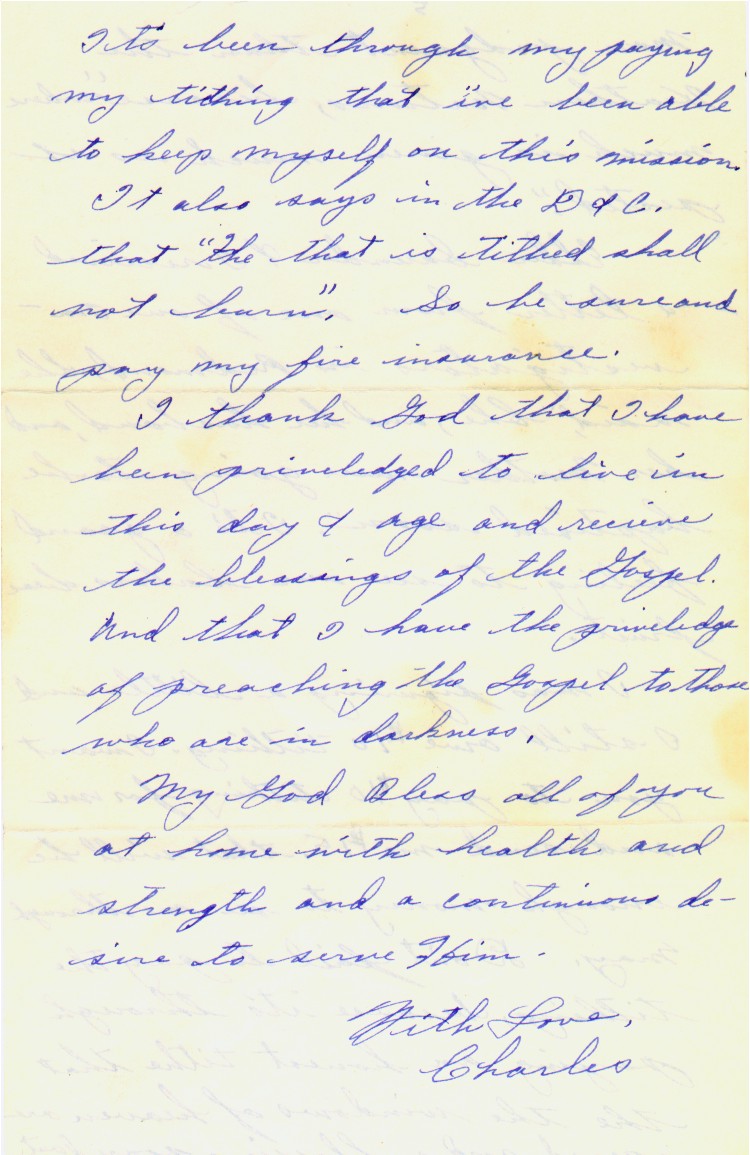 It's been through my paying
my tithing that "ive been able
to keep myself on this mission.
It also says in the D & C.
that "The that is tithed shall
not burn". So be sure and
pay my fire insurance.
I thank God that I have
been priveledged to live in
this day & age and recieve
the blessings of the Gospel.
And that I have the priveledge
of preaching the Gospel to those
who are in darkness.
My God Bless all of you
at home with health and
strength and a continuous de-
sire to serve Him.
With Love,
Charles